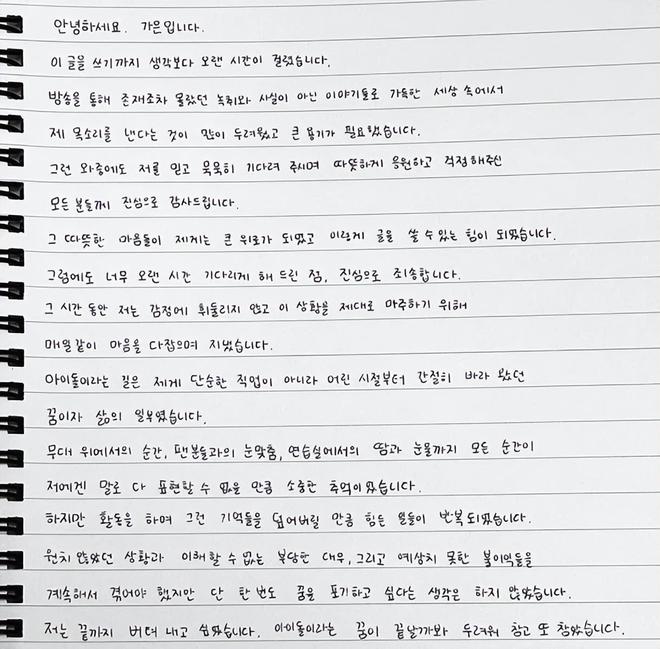 안녕하세요. 가은입니다.
이 글을 쓰기까지 생각보다 오랜 시간이 걸렸습니다.
방송을 통해 존재조차 몰랐던 녹취와 사실이 아닌 이야기들로 가득한 세상 속에서
제 목소리를 낸다는 것이 많이 두려웠고 큰 용기가 필요했습니다.
그런 와중에도 저를 믿고 묵묵히 기다려 주시며 따뜻하게 응원하고 걱정해주신
모든 분들께 진심으로 감사드립니다.
그 따뜻한 마음들이 제게는 큰 위로가 되었고 이렇게 글을 쓸 수 있는 힘이 되었습니다.
그럼에도 너무 오랜 시간 기다리게 해 드린 점, 진심으로 죄송합니다.
그 시간 동안 저는 감정에 휘둘리지 않고 이 상황을 제대로 마주하기 위해
매일같이 마음을 다잡으며 지냈습니다.
아이돌이라는 길은 제게 단순한 직업이 아니라 어린 시절부터 간절히 바라 왔던
꿈이자 삶의 일부였습니다.
무대 위에서의 순간, 팬분들과의 눈맞춤, 연습실에서의 땀과 눈물까지 모든 순간이
저에겐 말로 다 표현할 수 없을 만큼 소중한 추억이었습니다.
하지만 활동을 하며 그런 기억들을 덮어버릴 만큼 힘든 일들이 반복되었습니다.
원치 않았던 상황과 이해할 수 없는 부당한 대우, 그리고 예상치 못한 불이익들을
계속해서 겪어야 했지만 단 한 번도 꿈을 포기하고 싶다는 생각은 하지 않았습니다.
저는 끝까지 버텨 내고 싶었습니다. 아이돌이라는 꿈이 끝날까봐 두려워 참고 또 참았습니다.